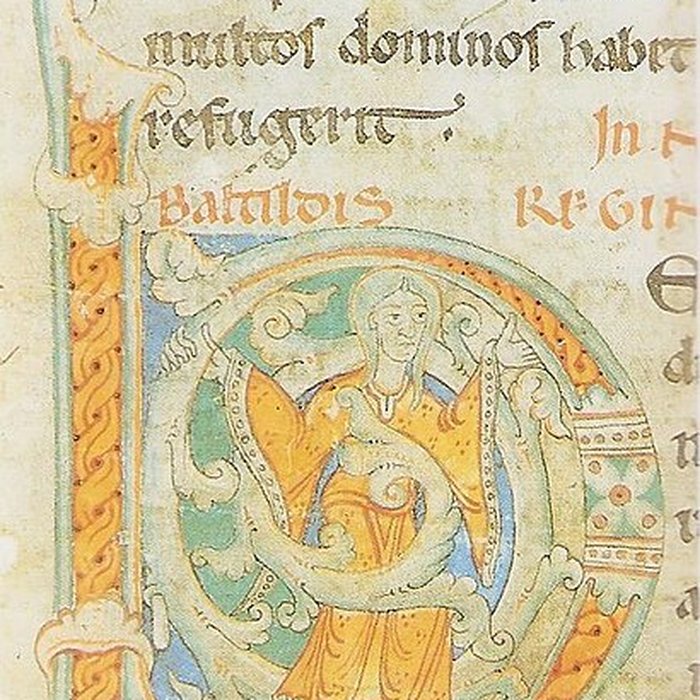 multos dominos habet
refugerit.
In
Baltildis REGI